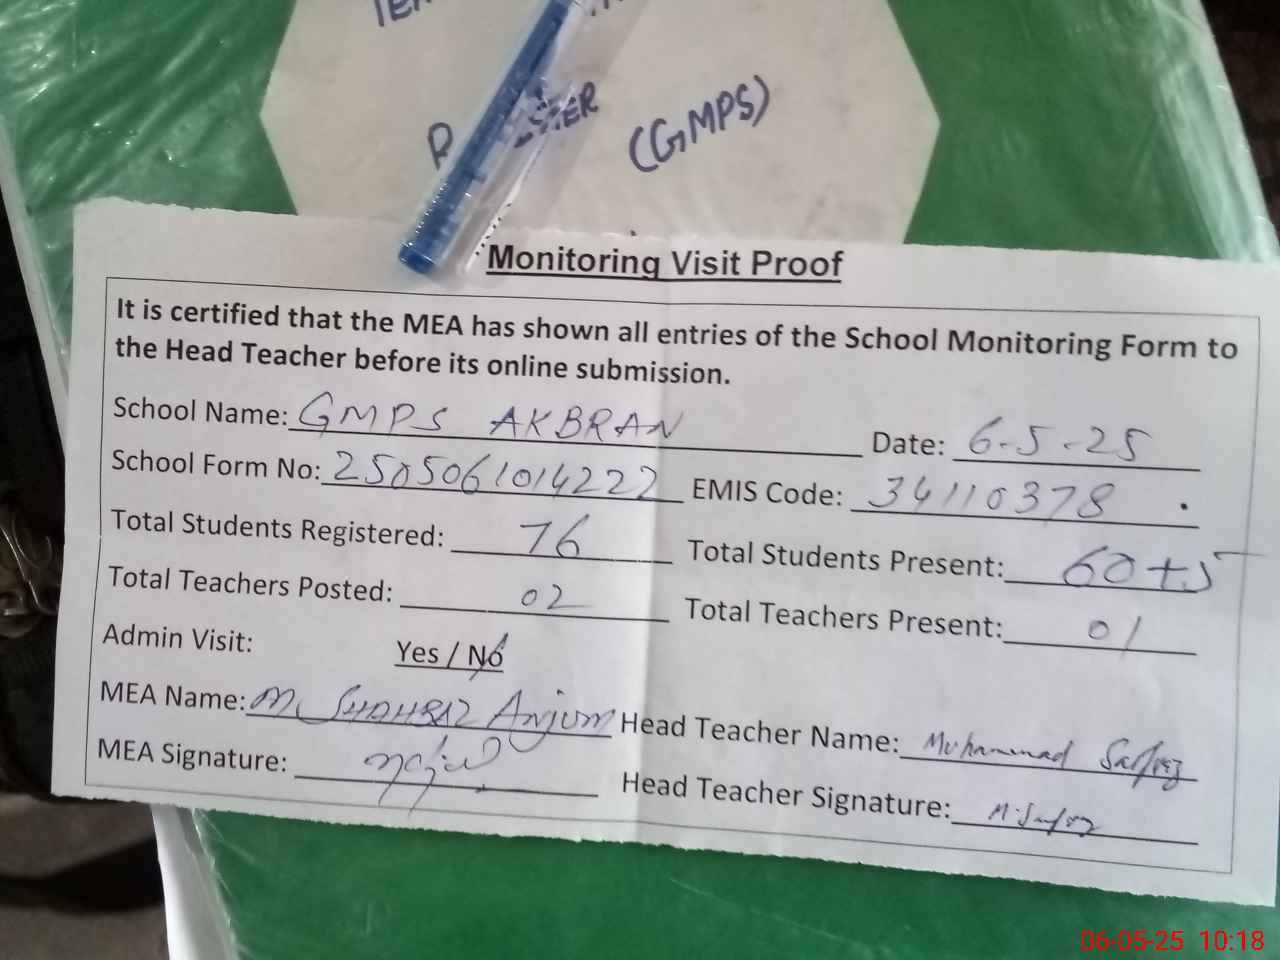 (GMPS)
Monitoring Visit Proof
It is certified that the MEA has shown all entries of the School Monitoring Form to
the Head Teacher before its online submission.
School Name: GMPS AKBRAN Date: 6-5-25
School Form No: 2505061014222 EMIS Code: 34110378
Total Students Registered: 76 Total Students Present: 60+5
Total Teachers Posted: 02 Total Teachers Present: 01
Admin Visit: Yes / No
MEA Name: M. SHAHBAZ Anjum Head Teacher Name: Muhammad Sarfraz
MEA Signature: Head Teacher Signature: M. Sarfraz
06-05-25 10:18